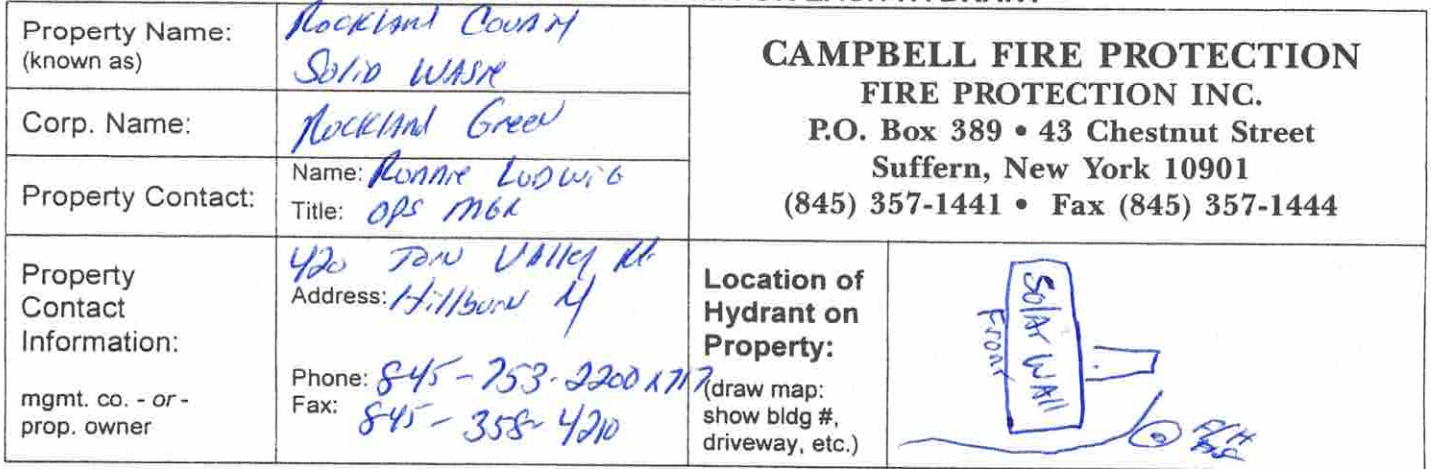 Property Name:
(known as)
Rockland County
Solid Waste
Corp. Name:
Rockland Green
Property Contact:
Name: Ronnie Ludwig
Title: OPS MGR
Property
Contact
Information:
mgmt. co. - or -
prop. owner
420 Torne Valley Rd.
Address: Hillburn NY
Phone: 845-753-2200 x717
Fax: 845-358-4210
CAMPBELL FIRE PROTECTION
FIRE PROTECTION INC.
P.O. Box 389 • 43 Chestnut Street
Suffern, New York 10901
(845) 357-1441 • Fax (845) 357-1444
Location of
Hydrant on
Property:
(draw map:
show bldg #,
driveway, etc.)
Solar Wall
Front